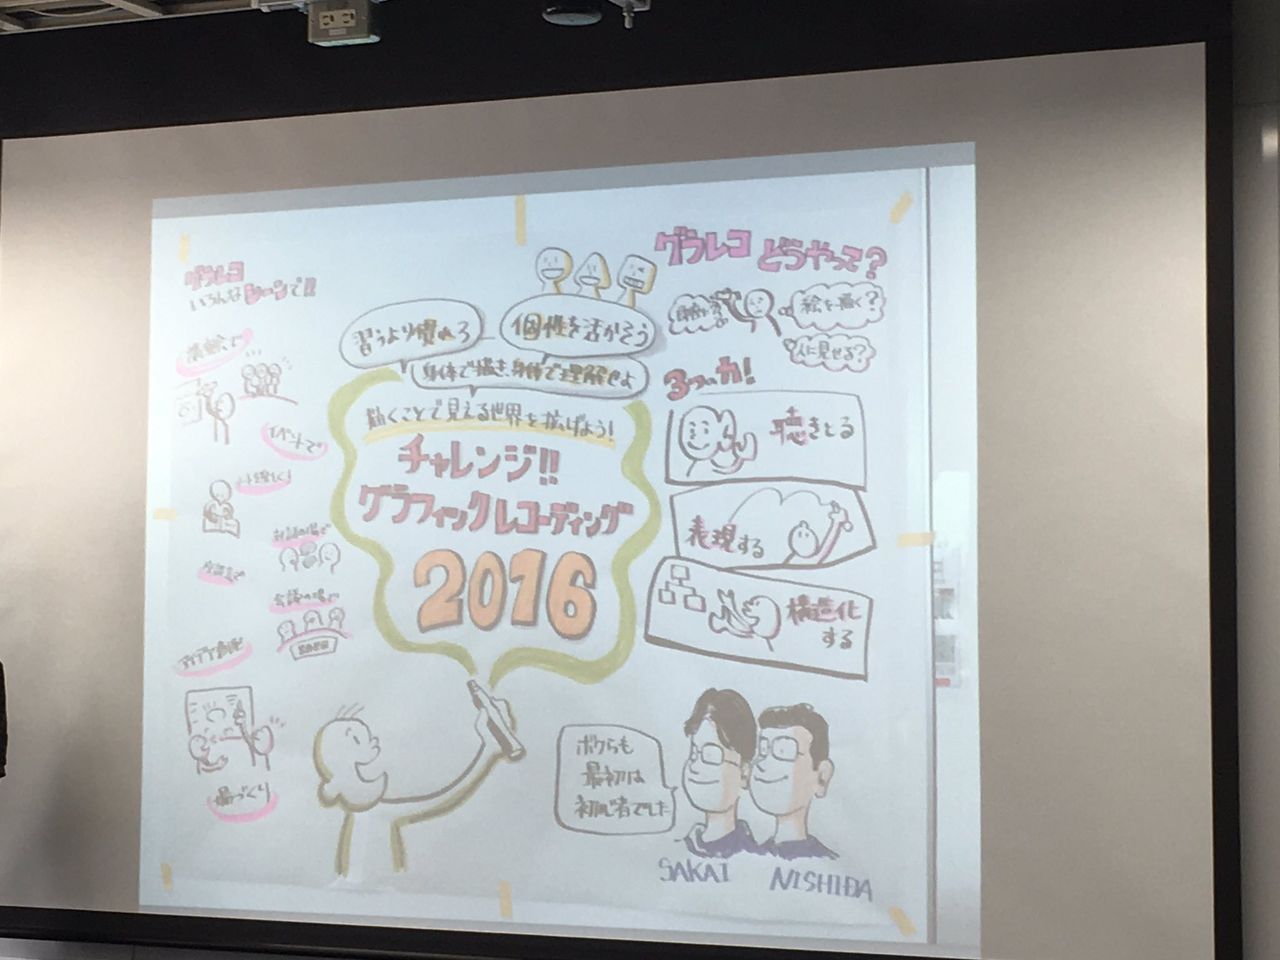 グラレコ
いろんなシーンで!!
イベントで
対話の場で
会議の場で
場づくり
習うより慣れろ
個性を活かそう
身体で描き、身体で理解せよ
描くことで見える世界を拡げよう!
チャレンジ!!
グラフィックレコーディング
2016
グラレコ どうやって?
絵を描く?
人に見せる?
3つの力!
聴きとる
表現する
構造化
する
ボクらも
最初は
初心者でした
SAKAI
NISHIDA